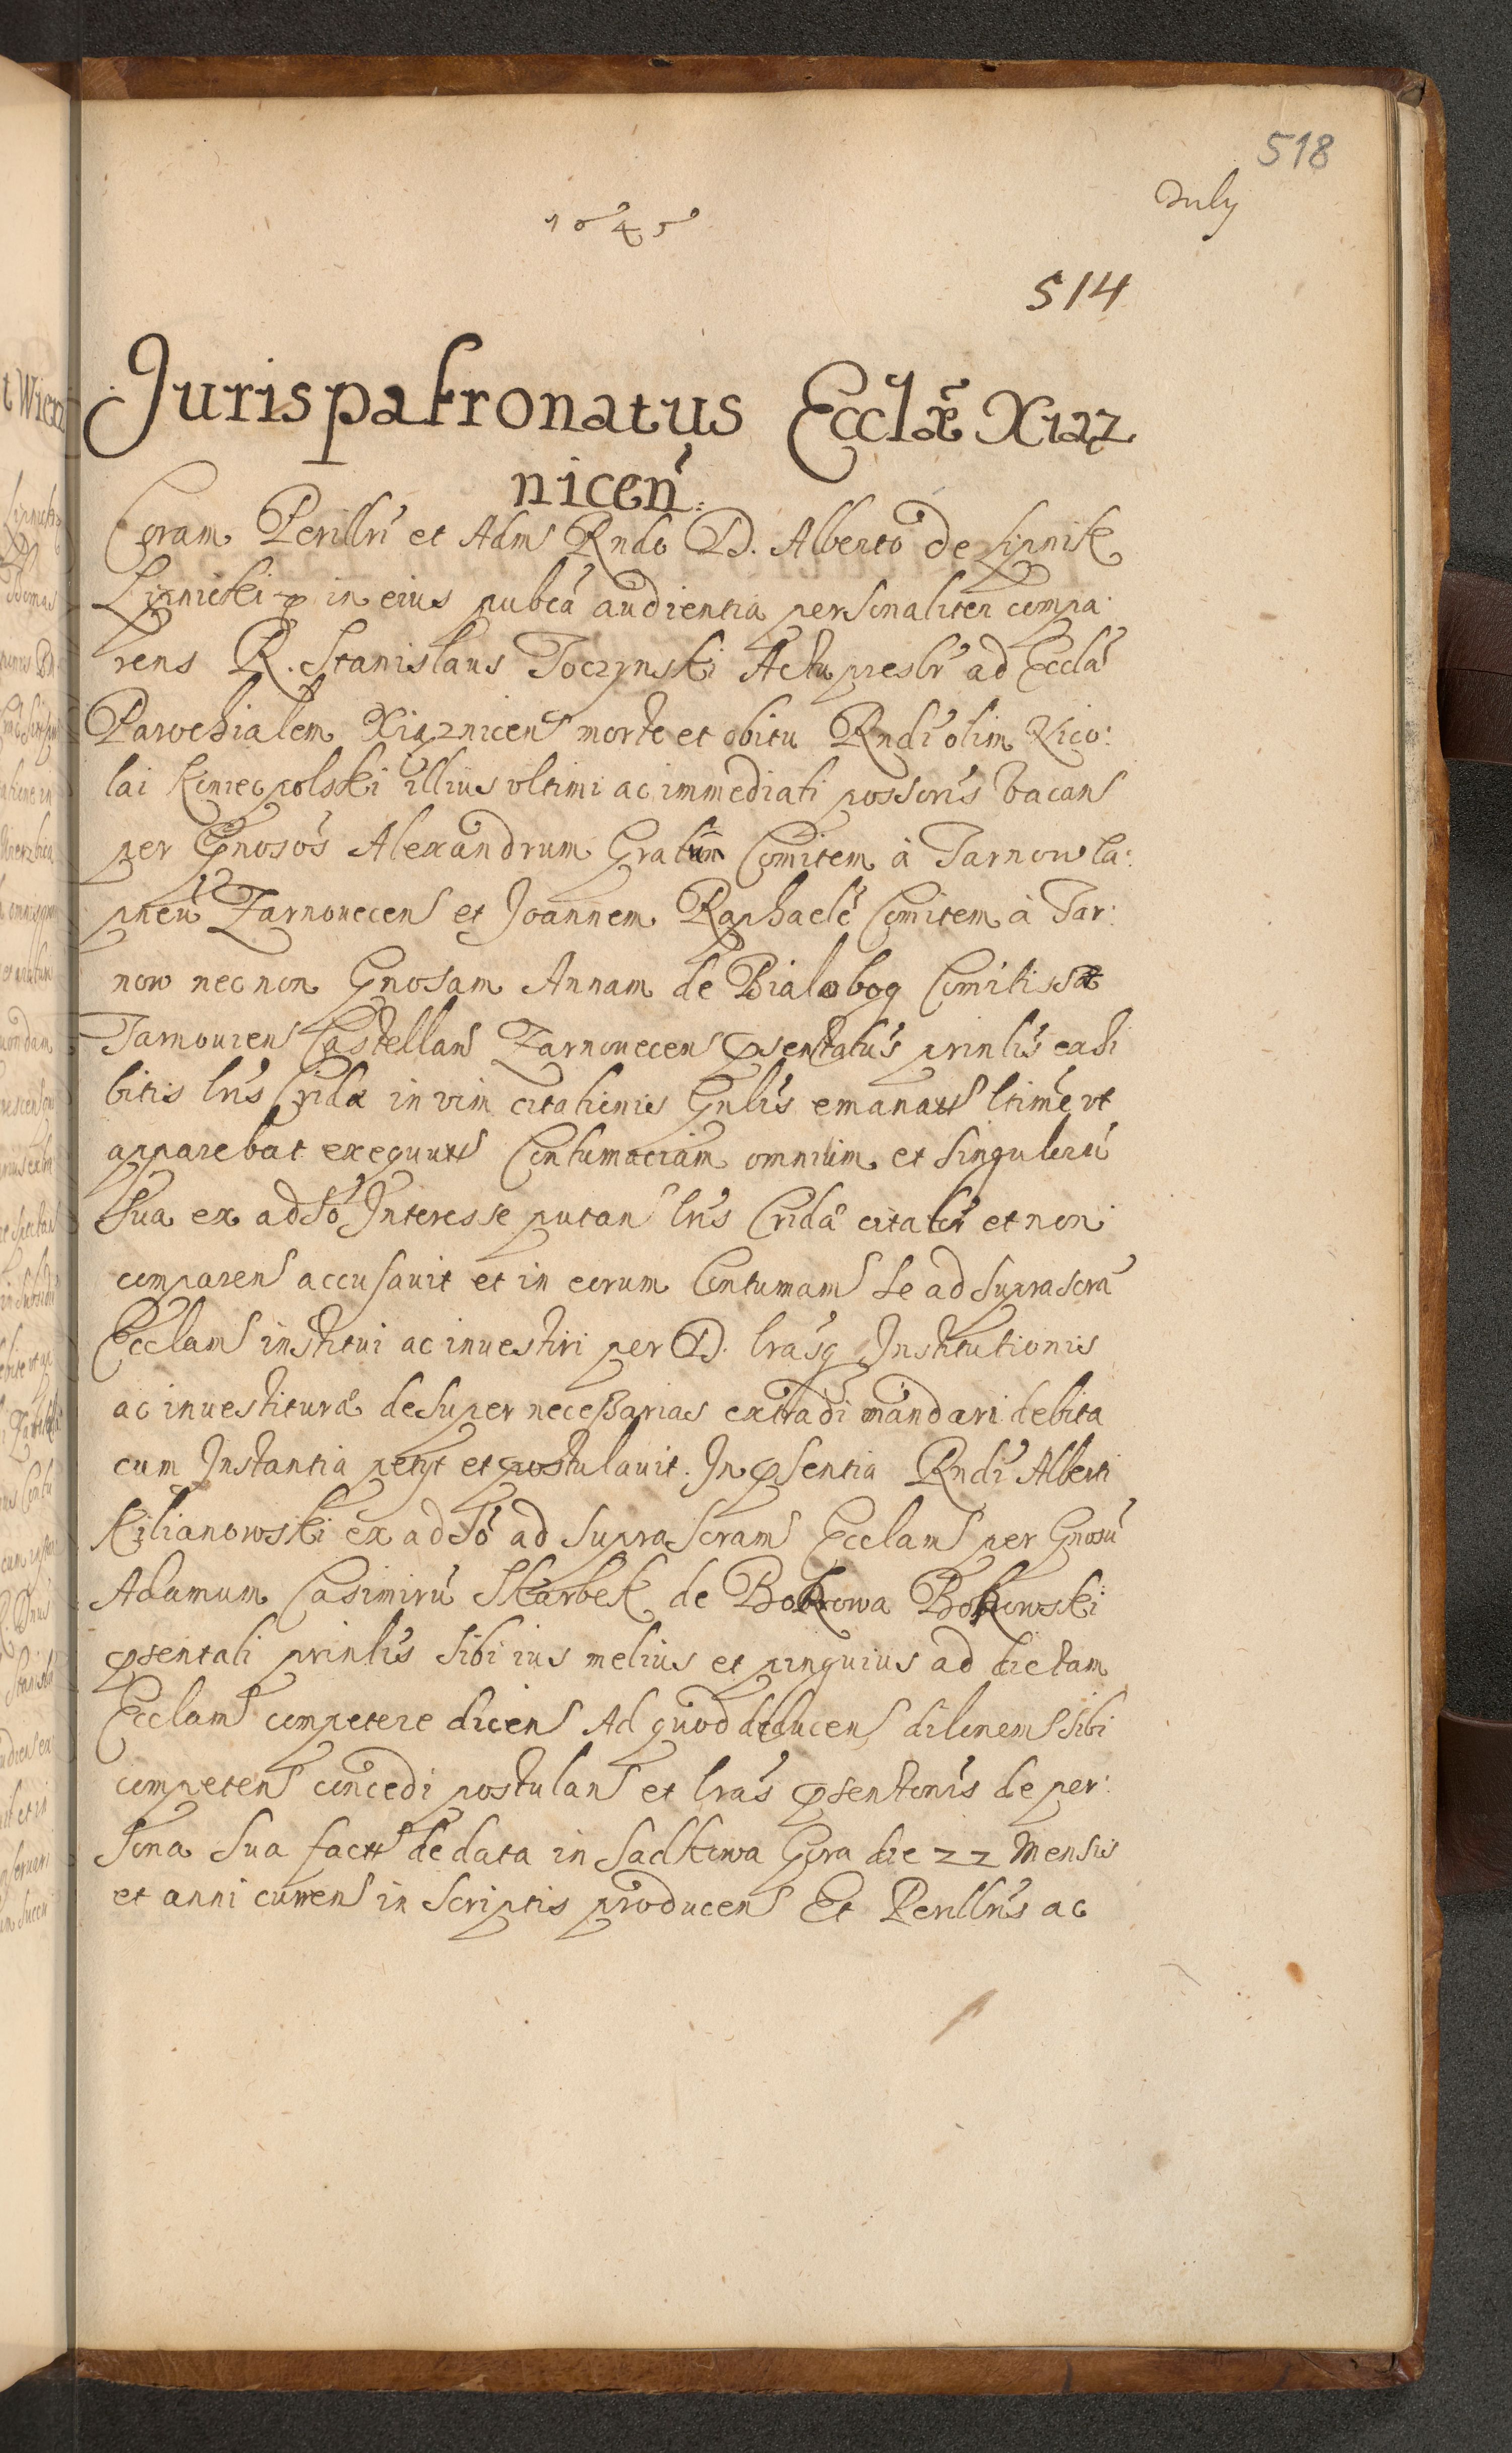 518
July
1645
514
Jurispatronatus Ecclæ Xiąz
nicen:
Coram Perillri et Adm Rndo D. Alberto de Lipnik
Lipnicki p in eius pubca audientia personaliter compa:
rens R. Stanislaus Toczynski Actu presbr ad Eccla
Parochialem Xiąznicen morte et obitu Rndi olim Nico:
lai Koniecpolski illius vltimi ac immediati possoris vacan
per Gnosos Alexandrum Comitem à Tarnow Ca:
pneu Zarnouecen et Joannem Raphaele Comitem à Tar:
now necnon Gnosam Annam de Bialobog Comitissa
Tarnouien Castellan Zarnouecen psentatus prinlis exhi
bitis lris Cridæ in vim citationis Gnlis emanatt ltime vt
apparebat exequutt Contumaciam omnium et singuloru
sua ex adso Interesse putan lris Crida citator et non
comparen accusauit et in eorum Contumam se ad suprascra
Ecclam institui ac inuestiri per D. lrasq Institutionis
ac inuestituræ desuper neceßarias extradi mandari debita
cum Instantia petyt et postulauit. In psentia Rndi Alberti
Kilianowski ex adso ad suprascram Ecclam per Gnosu
Adamum Casimiru Skarbek de Borkowa Borkowski
psentati prinlis sibi ius melius et pinguius ad dictam
Ecclam competere dicen Ad quod deducen dilonem sibi
competen concedi postulan et lras psentonis de per:
sona sua factt de data in Sadkowa Gora die 22 Mensis
et anni curren in scriptis producen Et Perillris ac